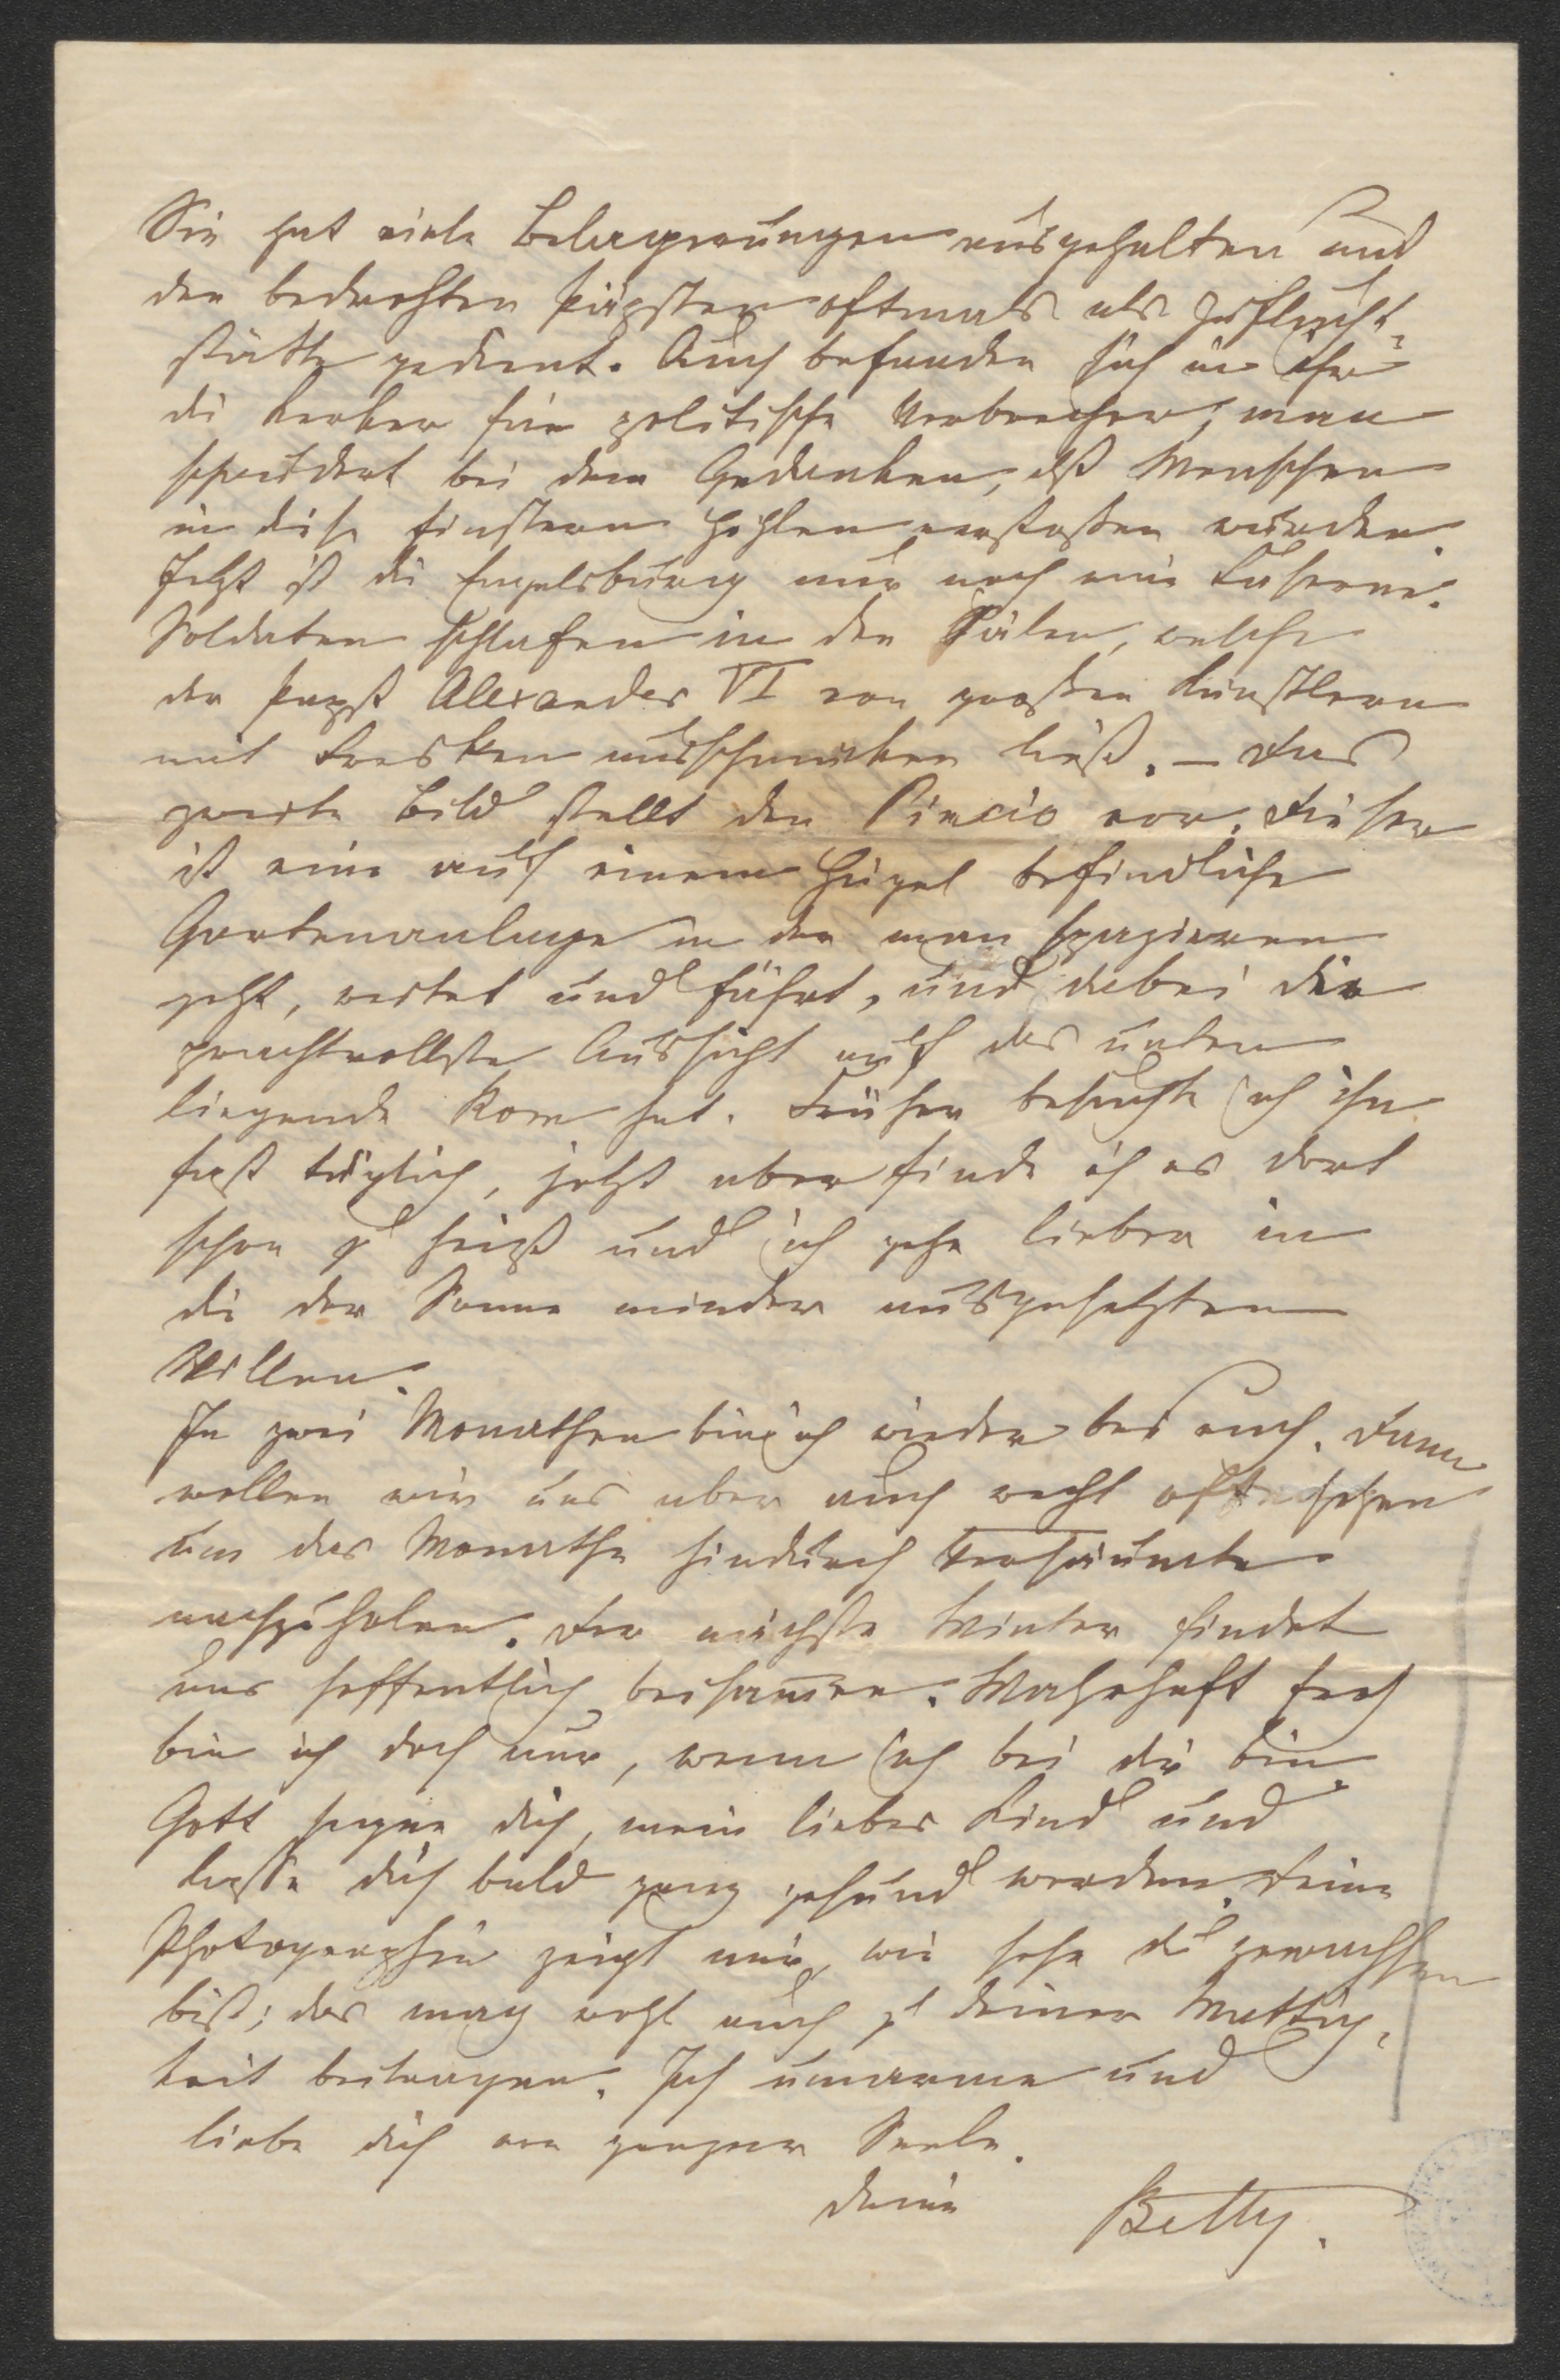 Sie hat viele Belagerungen ausgehalten und
den bedrohten Päpsten oftmals als Zuflucht-
stätte gedient. Auch befanden sich in ihr
die Kerker für politische Verbrecher; man
schaudert bei dem Gedanken, daß Menschen
in diese finstern Höhlen verstoßen wurden.
Jetzt ist die Engelsburg nur noch eine Caserne.
Soldaten schlafen in den Sälen, welche
der Papst Alexander VI von großen Künstlern
mit Fresken ausschmücken ließ. – Das
zweite Bild stellt den Pincio vor. Dieser
ist eine auf einem Hügel befindliche
Gartenanlage in der man spazieren
geht, reitet und fährt, und dabei die
prachtvollste Aussicht auf das unten
liegende Rom hat. Früher besuchte ich ihn
fast täglich, jetzt aber finde ich es dort
schon zu heiß und ich gehe lieber in
die der Sonne minder ausgesetzten
Villen.
In zwei Monathen bin ich wieder bei euch. Dann
wollen wir uns aber auch recht oft sehen
um das Monathe hindurch Versäumte
nachzuholen. Der nächste Winter findet
uns hoffentlich beisamen. Wahrhaft froh
bin ich doch nur, wenn ich bei dir bin.
Gott segne dich, mein liebes Kind und
lasse dich bald ganz gesund werden. Deine
Photographie zeigt mir, wie sehr du gewachsen
bist; das mag wohl auch zu deiner Mattig-
keit beitragen. Ich umarme und
liebe dich von ganzer Seele.
Deine Betty.